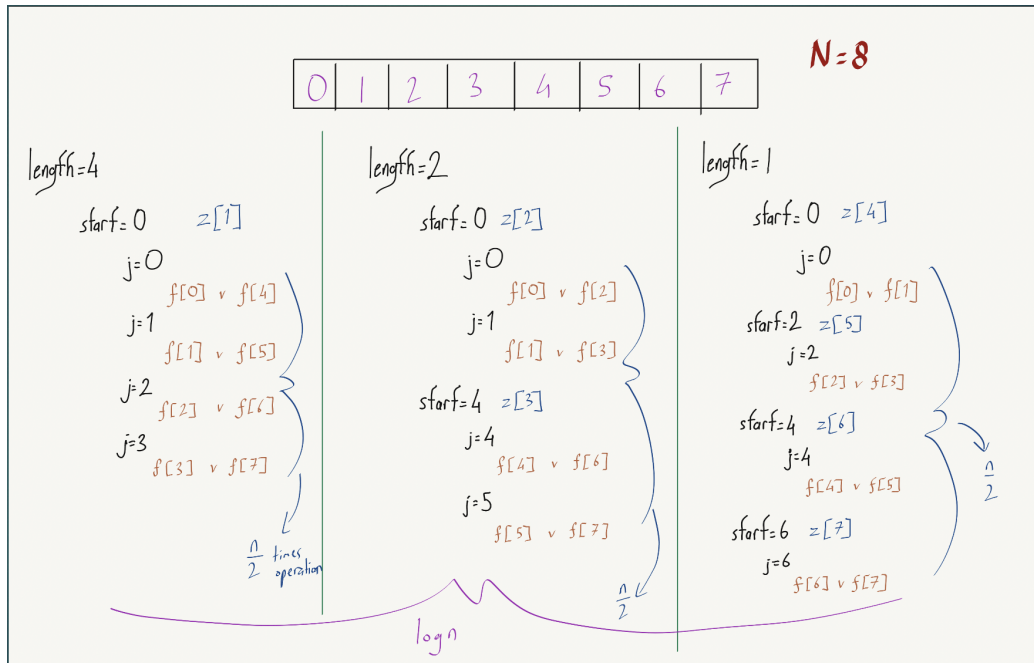 N=8
0 1 2 3 4 5 6 7
length=4
start=0 z[1]
j=0
f[0] v f[4]
j=1
f[1] v f[5]
j=2
f[2] v f[6]
j=3
f[3] v f[7]
n/2 times
operation
length=2
start=0 z[2]
j=0
f[0] v f[2]
j=1
f[1] v f[3]
start=4 z[3]
j=4
f[4] v f[6]
j=5
f[5] v f[7]
n/2
length=1
start=0 z[4]
j=0
f[0] v f[1]
start=2 z[5]
j=2
f[2] v f[3]
start=4 z[6]
j=4
f[4] v f[5]
start=6 z[7]
j=6
f[6] v f[7]
n/2
logn